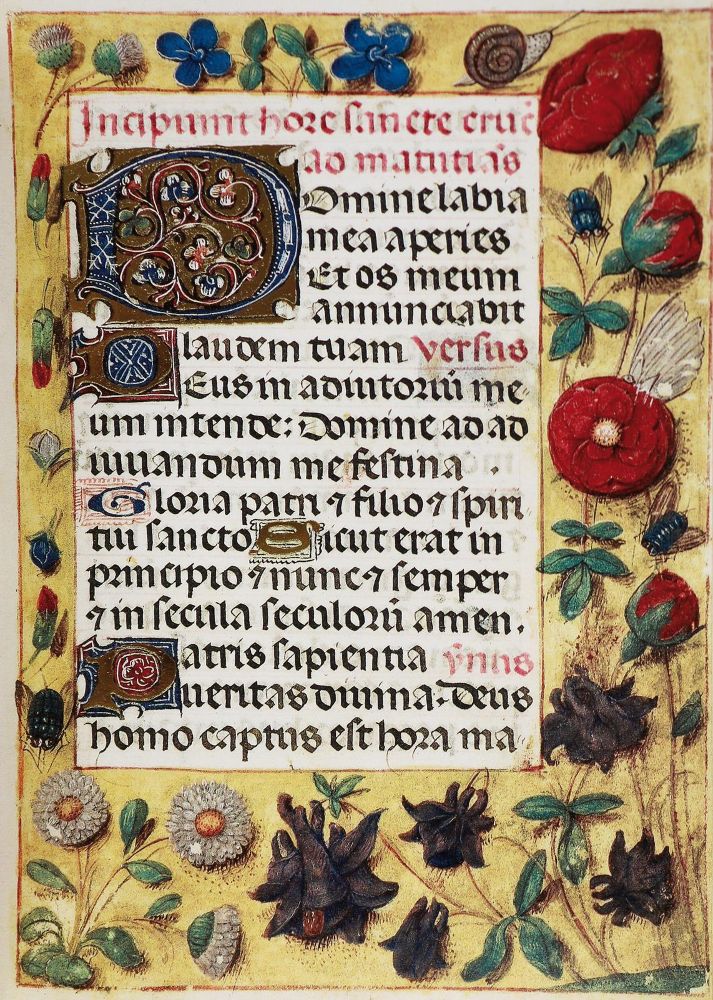 Incipiunt hore sancte cruc̄
ad matutīas
Domine labia
mea aperies
Et os meum
annunciabit
laudem tuam versus
Deus in adiutoriū me-
um intende: Domine ad ad
iuuandum me festina .
Gloria patri ⁊ filio ⁊ spiri
tui sancto Sicut erat in
principio ⁊ nunc ⁊ semper
⁊ in secula seculorū amen.
Patris sapientia ȳnus
ueritas diuina. Deus
homo captus est hora ma-